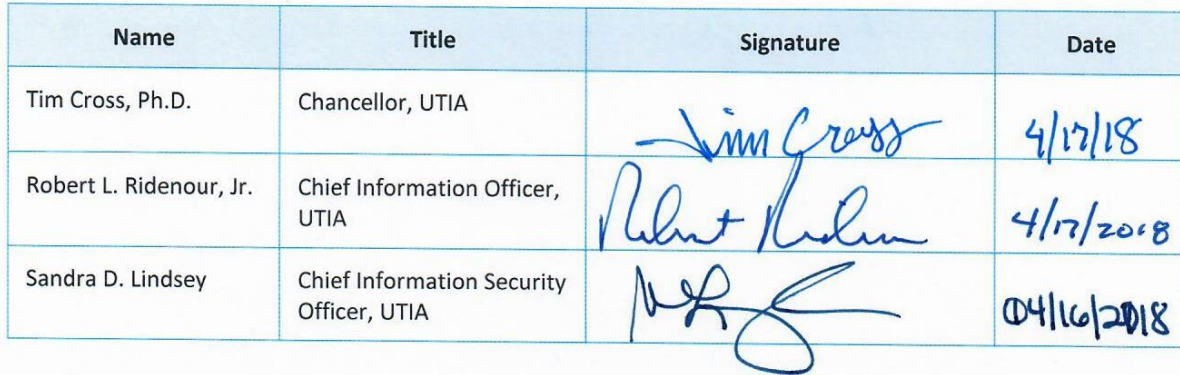 Name Title Signature Date
Tim Cross, Ph.D. Chancellor, UTIA Tim Cross 4/17/18
Robert L. Ridenour, Jr. Chief Information Officer,
UTIA Robert 4/17/2018
Sandra D. Lindsey Chief Information Security
Officer, UTIA 04/16/2018